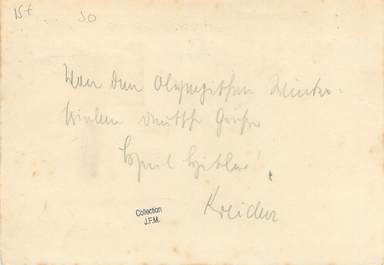 Ist 30
Von den Olympischen Winter-
spielen deutsche Grüße
Heil Hitler!
Kreider
Collection
J.F.M.